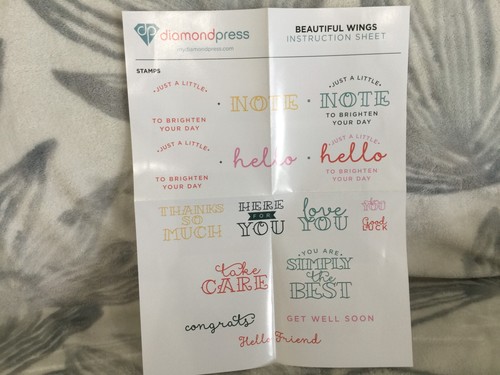 diamondpress
mydiamondpress.com
BEAUTIFUL WINGS
INSTRUCTION SHEET
STAMPS
·JUST A LITTLE·
TO BRIGHTEN
YOUR DAY
· NOTE ·
·JUST A LITTLE·
NOTE
TO BRIGHTEN
YOUR DAY
·JUST A LITTLE·
TO BRIGHTEN
YOUR DAY
· hello ·
·JUST A LITTLE·
hello
TO BRIGHTEN
YOUR DAY
THANKS
SO
MUCH
HERE
FOR
YOU
love
YOU
YOU
Good
LUCK
take
CARE
·YOU ARE·
SIMPLY
the
BEST
congrats
GET WELL SOON
Hello Friend